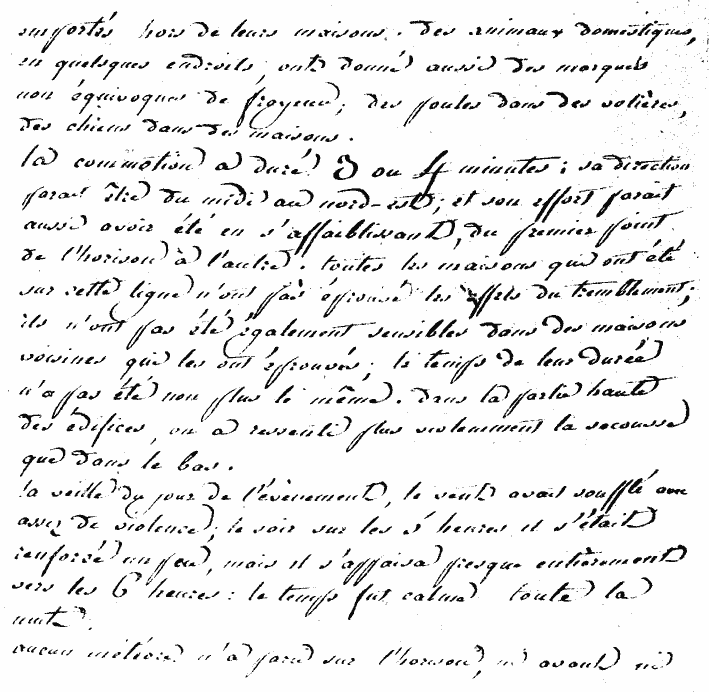 emportés hors de leurs maisons. des animaux domestiques,
en quelques endroits, ont donné aussi des marques
non équivoques de frayeur; des poules dans des volières,
des chiens dans des maisons.
la commotion a duré 3 ou 4 minutes: sa direction
parait être du midi au nord-est; et son effort parait
aussi avoir été en s'affaiblissant, du premier point
de l'horison à l'autre. toutes les maisons qui ont été
sur cette ligne n'ont pas éprouvé les effets du tremblement;
ils n'ont pas été également sensibles dans des maisons
voisines qui les ont éprouvés; le temps de leur durée
n'a pas été non plus le même. dans la partie haute
des édifices, on a ressenti plus violemment la secousse
que dans le bas.
la veille du jour de l'évènement, le vent avait soufflé avec
assez de violence; le soir sur les 5 heures il s'était
renforcé un peu, mais il s'appaisa presque entièrement
vers les 6 heures: le temps fut calme toute la
nuit.
aucun météore n'a paru sur l'horison, ni avant ni